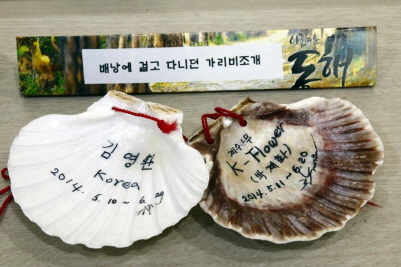 배낭에 걸고 다니던 가리비조개
아름다운
동해
김영환
Korea
2014.
5.10 ~ 6.20
K-Flower
(박계화)
2014. 5.11 ~ 6.20